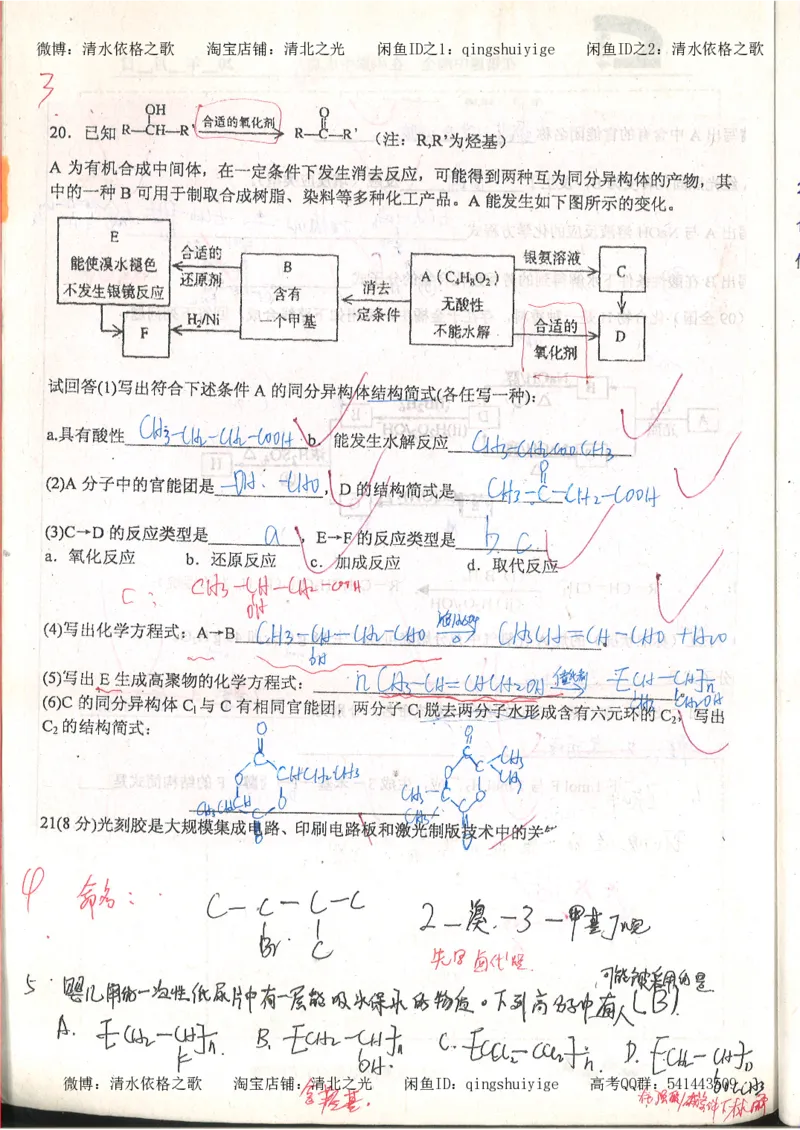 微博：清水依格之歌 淘宝店铺：清北之光 闲鱼ID之1：qingshuiyige 闲鱼ID之2：清水依格之歌
3
20．已知 R—CH—R' 合适的氧化剂 R—C—R' （注：R,R'为烃基）
OH O
A 为有机合成中间体，在一定条件下发生消去反应，可能得到两种互为同分异构体的产物，其
中的一种 B 可用于制取合成树脂、染料等多种化工产品。A 能发生如下图所示的变化。
E
能使溴水褪色
不发生银镜反应
合适的
还原剂
B
含有
一个甲基
消去
一定条件
A（C₄H₈O₂）
无酸性
不能水解
银氨溶液
C
合适的
氧化剂
D
F
H₂/Ni
试回答(1)写出符合下述条件 A 的同分异构体结构简式(各任写一种)：
a.具有酸性 CH3-CH2-CH2-COOH b. 能发生水解反应 CH3-CH2COOCH3
(2)A 分子中的官能团是 -OH、-CHO，D 的结构简式是 CH3-C-CH2-COOH
O
(3)C→D 的反应类型是 a，E→F 的反应类型是 b c
a．氧化反应 b．还原反应 c．加成反应 d．取代反应
C： CH3-CH-CH2-COOH
OH
(4)写出化学方程式：A→B CH3-CH-CH2-CHO CH3CH=CH-CHO+H2O
OH
(5)写出 E 生成高聚物的化学方程式： n CH3-CH=CHCH2OH 催化剂 -[CH-CH]n
CH3 CH2OH
(6)C 的同分异构体 C₁与 C 有相同官能团，两分子 C₁脱去两分子水形成含有六元环的 C₂；写出
C₂ 的结构简式：
21(8 分)光刻胶是大规模集成电路、印刷电路板和激光制版技术中的关
4 命名：
C-C-C-C
Br C
2-溴-3-甲基丁烷
先写卤代烃
5 婴儿用的一次性纸尿片中有一层能吸水保水的物质。下列高分子中有 可能被采用的是 (B).
A. -[CH2-CH]n B. -[CH2-CH]n C. -[CCl2-CCl2]n D. -[CH2-CH]n
F OH
微博：清水依格之歌 淘宝店铺：清北之光 闲鱼ID：qingshuiyige 高考QQ群：541443509
含羟基.